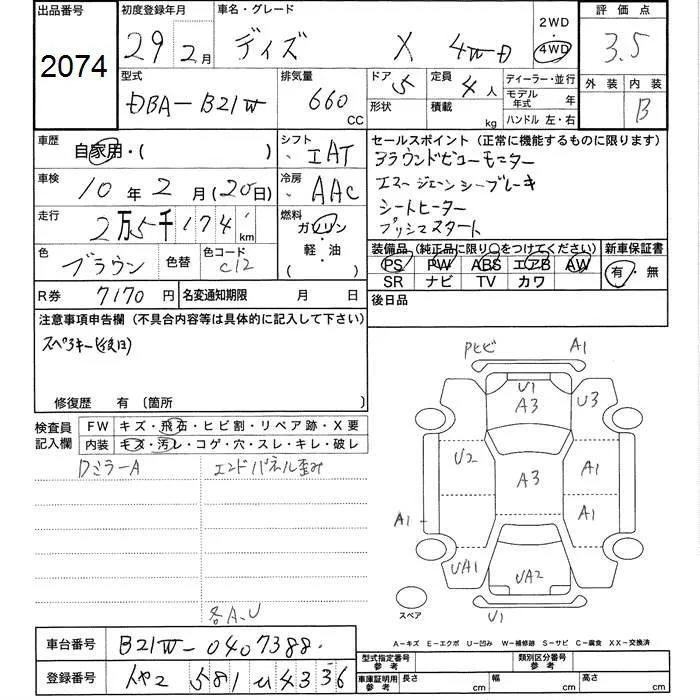 出品番号 初度登録年月 車名・グレード 2WD 評価点
2074 29年2月 デイズ X 4WD 4WD 3.5
型式 排気量 ドア 5 定員 4人 ディーラー・並行 外装 内装
DBA-B21W 660CC 形状 積載 kg モデル年式 年 B
ハンドル 左・右
車歴 自家用・( ) シフト IAT セールスポイント (正常に機能するものに限ります)
アラウンドビューモニター
車検 10年2月(20日) 冷房 AAC エマージェンシーブレーキ
シートヒーター
走行 2万5千174km 燃料 ガソリン・軽・油 ( ) プッシュスタート
色 ブラウン 色替 色コード C12 装備品 (純正品に限り○をつけてください) 新車保証書
PS PW ABS エアB AW 有・無
SR ナビ TV カワ
R券 7170円 名変通知期限 月 日 後日品
注意事項申告欄 (不具合内容等は具体的に記入して下さい)
スペアキー(後日)
修復歴 有 〔箇所 〕
検査員記入欄 FW キズ・飛石・ヒビ割・リペア跡・X要
内装 キズ・汚レ・コゲ・穴・スレ・キレ・破レ
DミラーA エンドパネル歪み
各A、U
Pヒビ A1
U1
A3 U3
U2 A3 A1
A1 A1
UA1 UA2
スペア U1
A-キズ E-エクボ U-凹み W-補修跡 S-サビ C-腐食 XX-交換済
車台番号 B21W-0407388
型式指定番号 参考 類別区分番号 参考
登録番号 581 4336
車庫証明用 参考 長さ cm 幅 cm 高さ cm